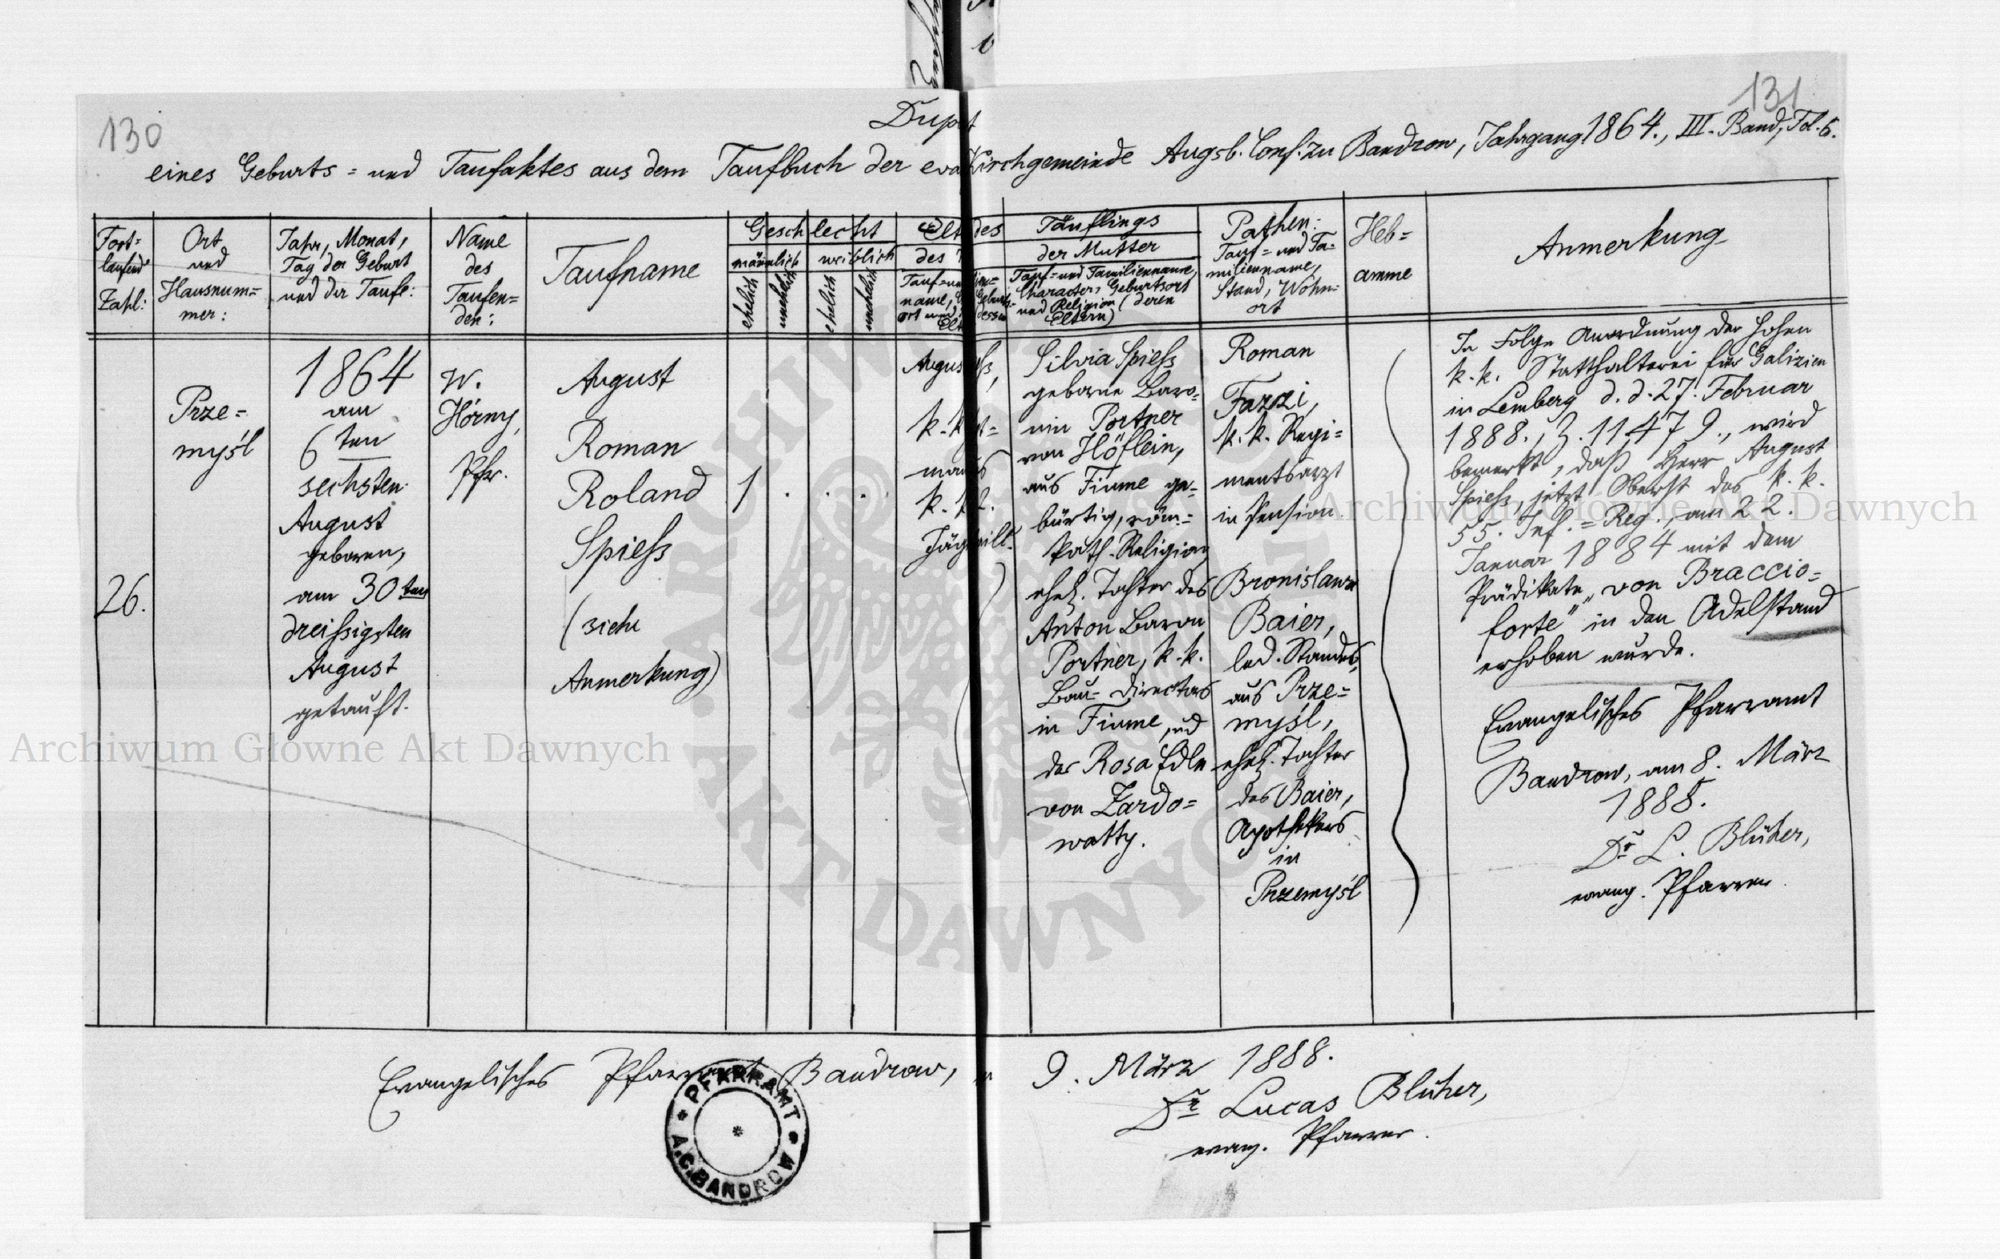 130
131
eines Geburts = und Taufaktes aus dem Taufbuch der eva Kirchgemeinde Augsb. Conf. zu Bandrow, Jahrgang 1864., III. Band, Fol. 6.
Fort=
laufende
Zahl:
Ort
und
Hausnum=
mer:
Jahr, Monat,
Tag der Geburt
und der Taufe:
Name
des
Taufen=
den:
Taufname
Geschlecht
männlich
weiblich
ehelich
unehelich
ehelich
unehelich
des
Täuflings
der Mutter
Tauf= und Familienname,
Character, Geburtsort
und Religion (deren
Eltern)
Pathen:
Tauf= und Fa=
milienname,
Stand, Wohn=
ort
Heb=
amme
Anmerkung
26.
Prze=
myśl
1864
am
6ten
sechsten
August
geboren,
am 30ten
dreißigsten
August
getauft.
W.
Hörny,
Pfr.
August
Roman
Roland
Spieß
(siehe
Anmerkung)
1 . . .
k. k.
Silvia Spieß
geborne Baro=
nin Portner
von Höflein,
aus Fiume ge=
bürtig, röm.=
kath. Religion
ehel. Tochter des
Anton Baron
Portner, k. k.
Bau= Directors
in Fiume, und
der Rosa Edle
von Zardo=
watty.
Roman
Fazzi,
k. k. Regi=
mentsarzt
in Pension
Bronislawa
Baier,
led. Standes,
aus Prze=
myśl,
ehel. Tochter
des Baier,
Apothekers
in
Przemyśl
In Folge Anordnung der hohen
k. k. Statthalterei für Galizien
in Lemberg d. d. 27. Februar
1888., Z. 11.479., wird
bemerkt, daß Herr August
Spieß, jetzt Oberst des k. k.
55. Inf. = Reg., am 22.
Januar 1884 mit dem
Prädikate „von Braccio=
forte" in den Adelstand
erhoben wurde.
Evangelisches Pfarramt
Bandrow, am 8. März
1888.
Dr L. Blüher,
evang. Pfarrer.
Evangelisches Pfarramt Bandrow, 9. März 1888.
Dr Lucas Blüher,
evang. Pfarrer.
* PFARRAMT * A.C. BANDROW
Archiwum Główne Akt Dawnych
Archiwum Główne Akt Dawnych
ARCHIWUM AKT DAWNYCH